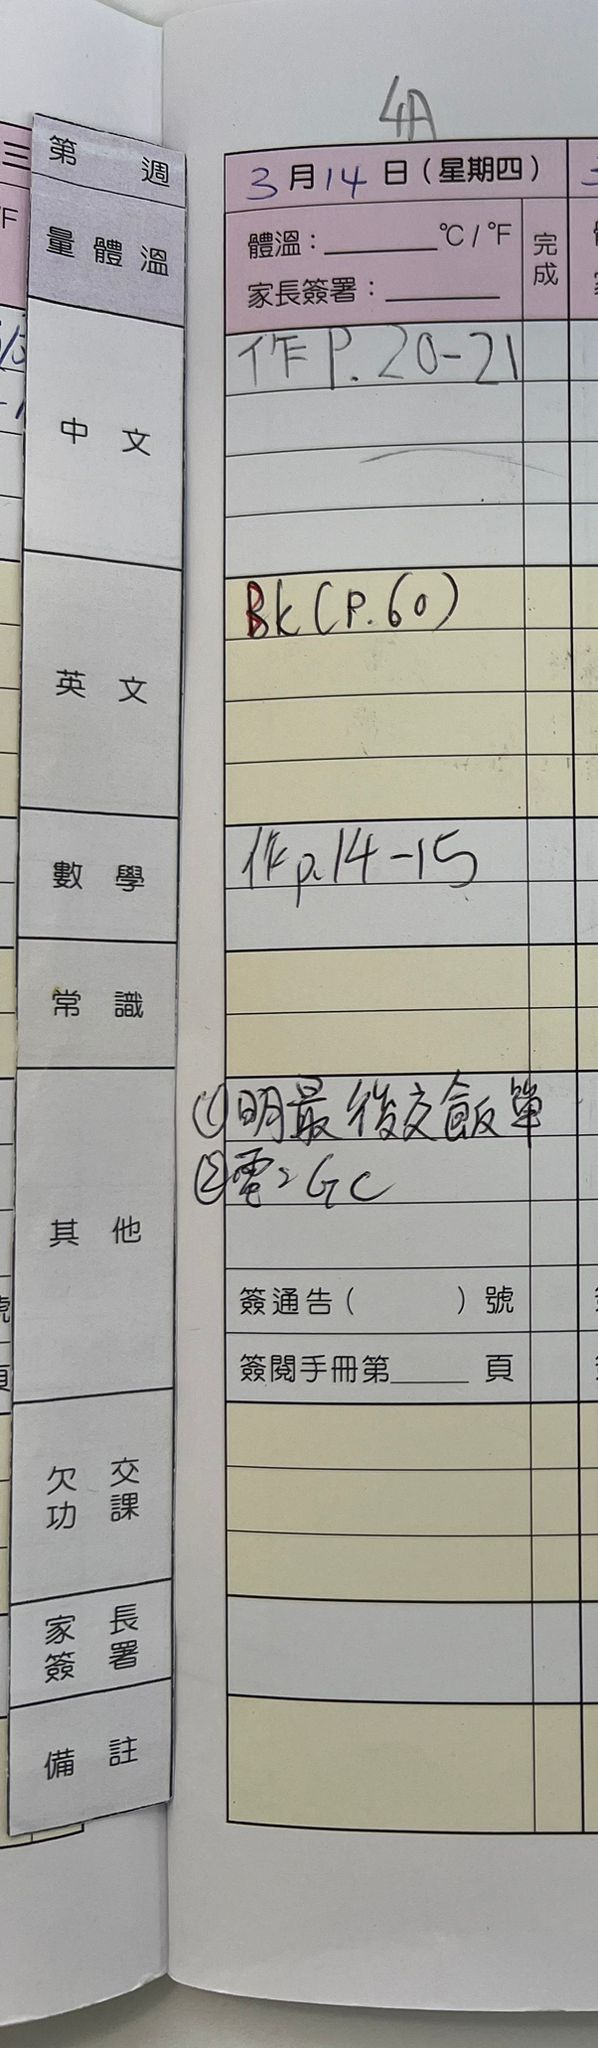 4A
第 週
3月14日(星期四)
量體溫
體溫：______℃/℉
完成
家長簽署：______
中文
作P.20-21
英文
Bk(P.60)
數學
作p.14-15
常識
其他
①明最後交飯單
②電> GC
簽通告( )號
簽閱手冊第____頁
欠交
功課
家長
簽署
備註